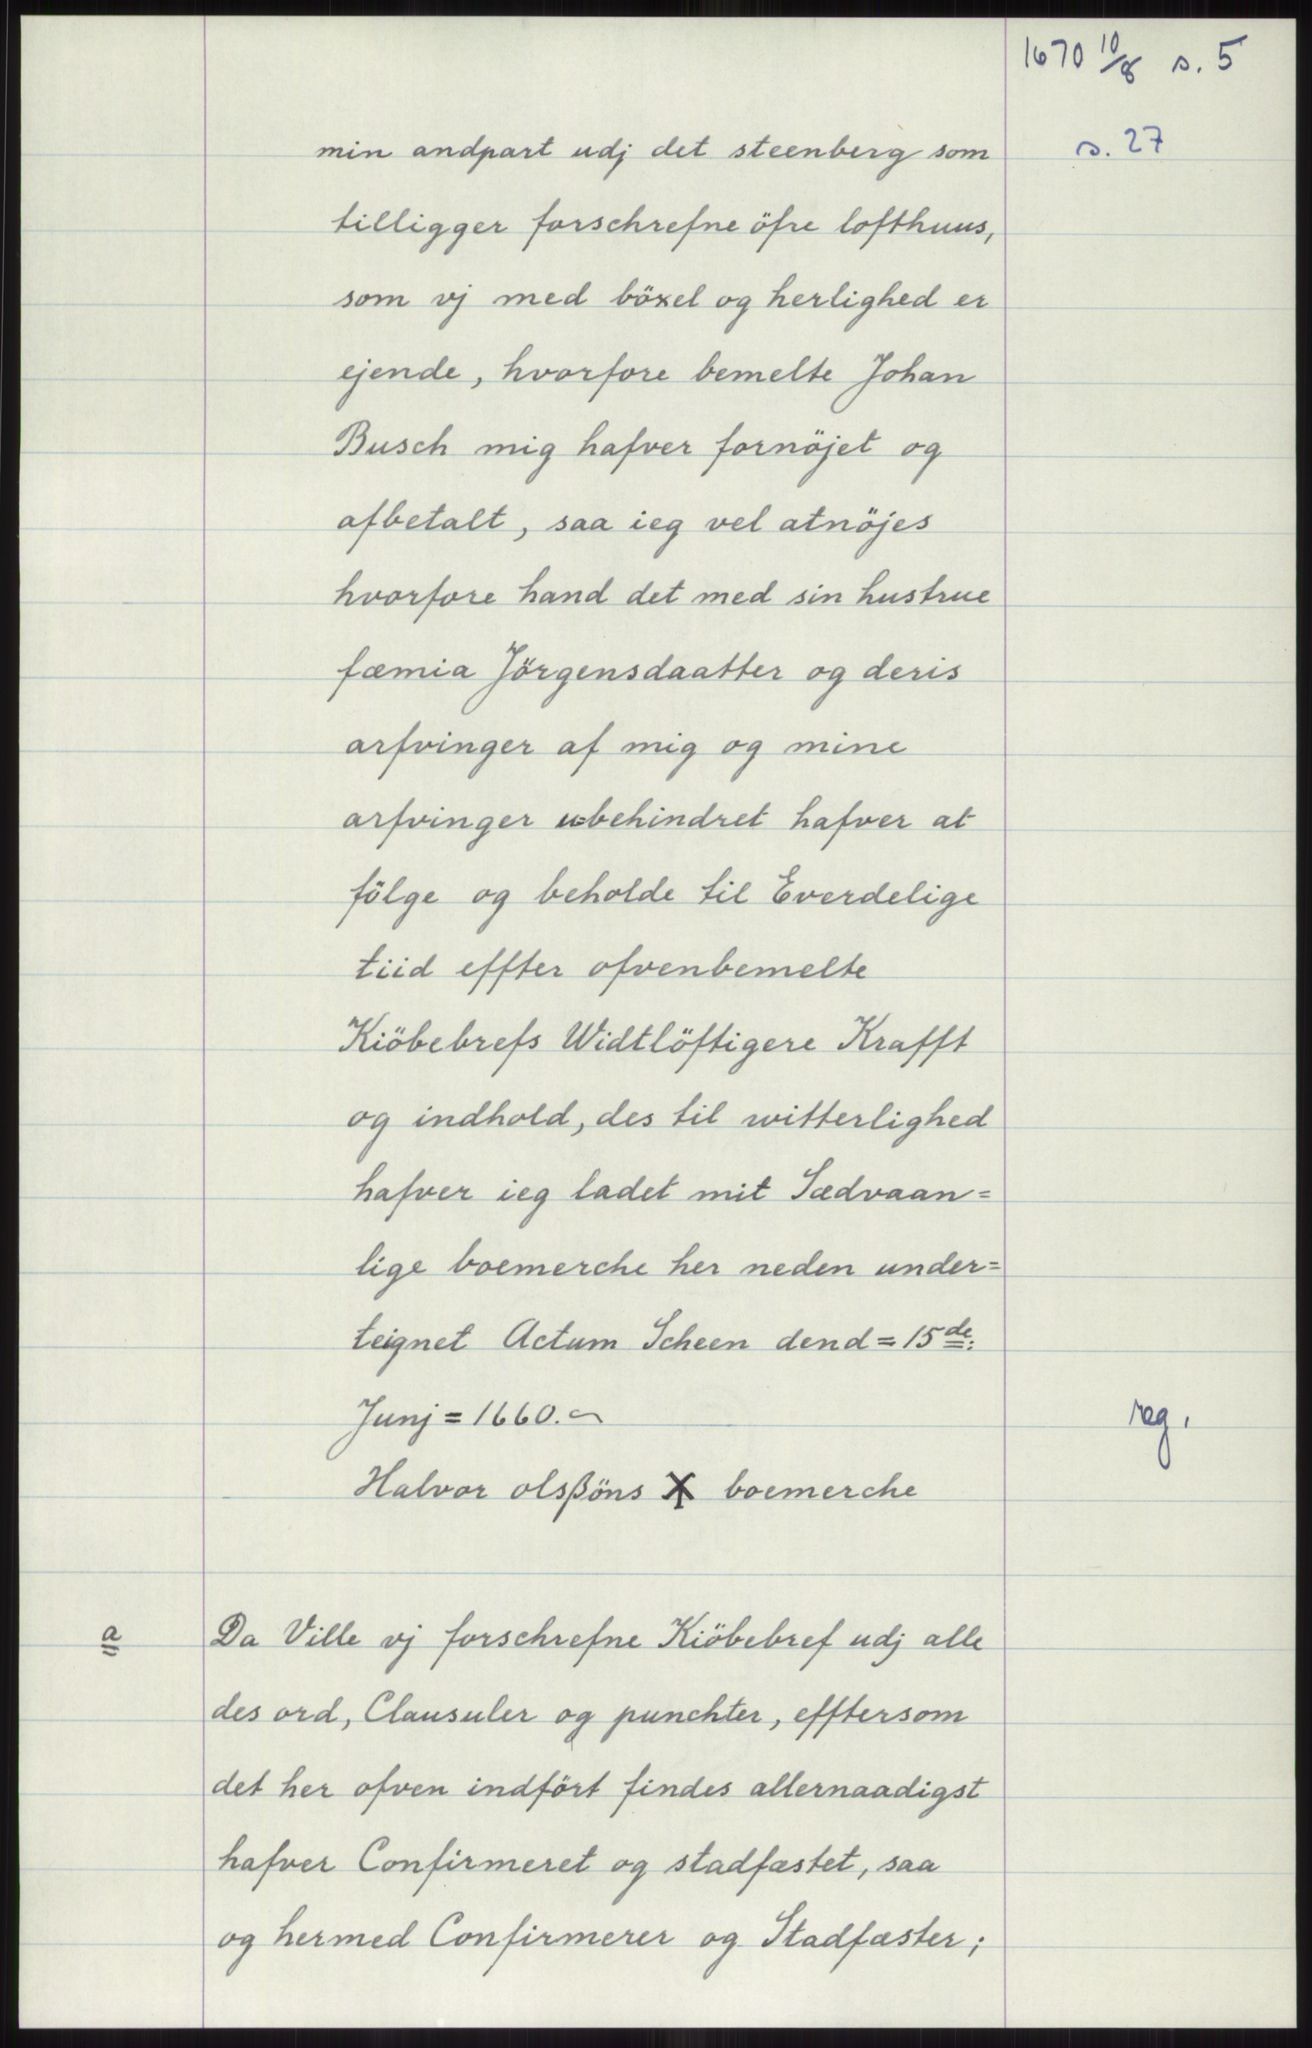 1670 10/8 s. 5
s. 27
min andpart udj det steenberg som
tilligger forschrefne öfre lofthuus,
som vj med böxel og herlighed er
ejende, hvorfore bemelte Johan
Busch mig hafver fornöjet og
afbetalt, saa ieg vel atnöjes
hvorfore hand det med sin hustrue
fæmia Jörgensdaatter og deris
arfvinger af mig og mine
arfvinger ubehindret hafver at
fölge og beholde til Everdelige
tiid effter ofvenbemelte
Kiöbebrefs Widtlöftigere Krafft
og indhold, des til witterlighed
hafver ieg ladet mit Sædvaan=
lige boemerche her neden under=
teignet Actum Scheen dend = 15de:
Junj = 1660.
reg.
Halvor olsßöns X boemerche
a
Da Ville vj forschrefne Kiöbebref udj alle
des ord, Clausuler og punchter, efftersom
det her ofven indfört findes allernaadigst
hafver Confirmeret og stadfæstet, saa
og hermed Confirmerer og Stadfæster;